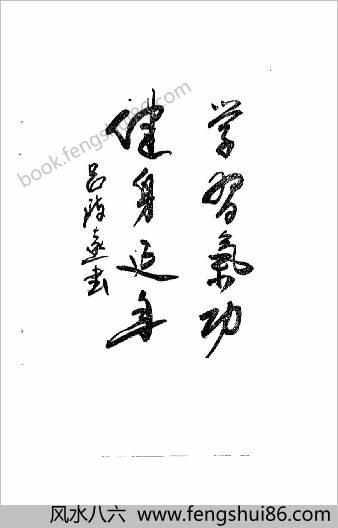 学習氣功
健身延年
吕
遠书
book.fengshui86.com
风水八六 www.fengshui86.com